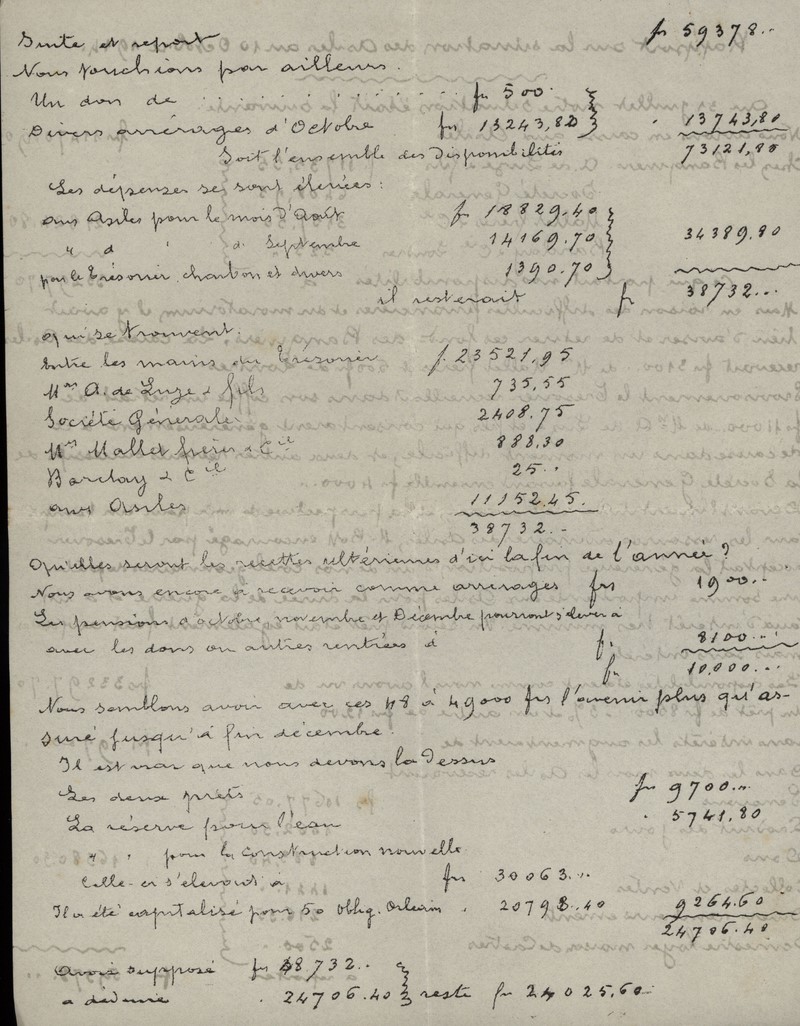 Suite et report fr 59378..
Nous touchions par ailleurs.
Un don de .............. fr 500.
Divers arrérages d'Octobre frs 13243,80 . 13743,80
Soit l'ensemble des Disponibilités 73121,80
Les dépenses se sont élevées:
aux Asiles pour le mois d'Août fr 18829.40
" d ' d. Septembre 14169.70 34389.80
par le Trésorier, charbon et divers 1390.70
il resterait fr 38732...
qui se trouvent:
Entre les mains du Trésorier f. 23521,95
Mrs A. de Luze & fils 735,55
Société Générale 2408.75
Mrs Mallet frères & Cie 888,30
Barclay & Cie 25..
aux Asiles 11152.45.
38732.-
Qu'elles seront les recettes ultérieures d'ici la fin de l'année?
Nous avons encore à recevoir comme arrérages frs 1900..
Les pensions d'octobre, novembre et Décembre pourront s'élever à
avec les dons ou autres rentrées à fr. 8100...
fr. 10,000...
Nous semblons avoir avec ces 48 à 49000 frs l'avenir plus qu'as-
suré jusqu'à fin décembre.
Il est vrai que nous devons la Dessus
Les deux prêts fr 9700...
La réserve pour l'eau . 5741,80
" " pour la construction nouvelle
Celle-ci s'élevait à frs 30063...
Il a été capitalisé pour 50 Oblig. Orléans . 20798.40 9264.60
24706.40
Avoir supposé fr 48732..
a déduire . 24706.40 reste fr 24025,60